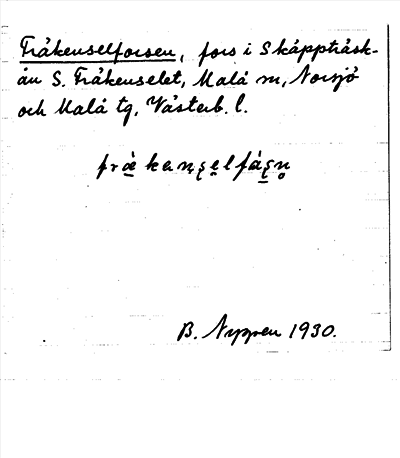 Fräkenselforsen, fors i Skäppträsk-
ån S. Fräkenselet, Malå sn, Norsjö
och Malå tg, Västerb. l.
fräkensel
B. Nyppen 1930.